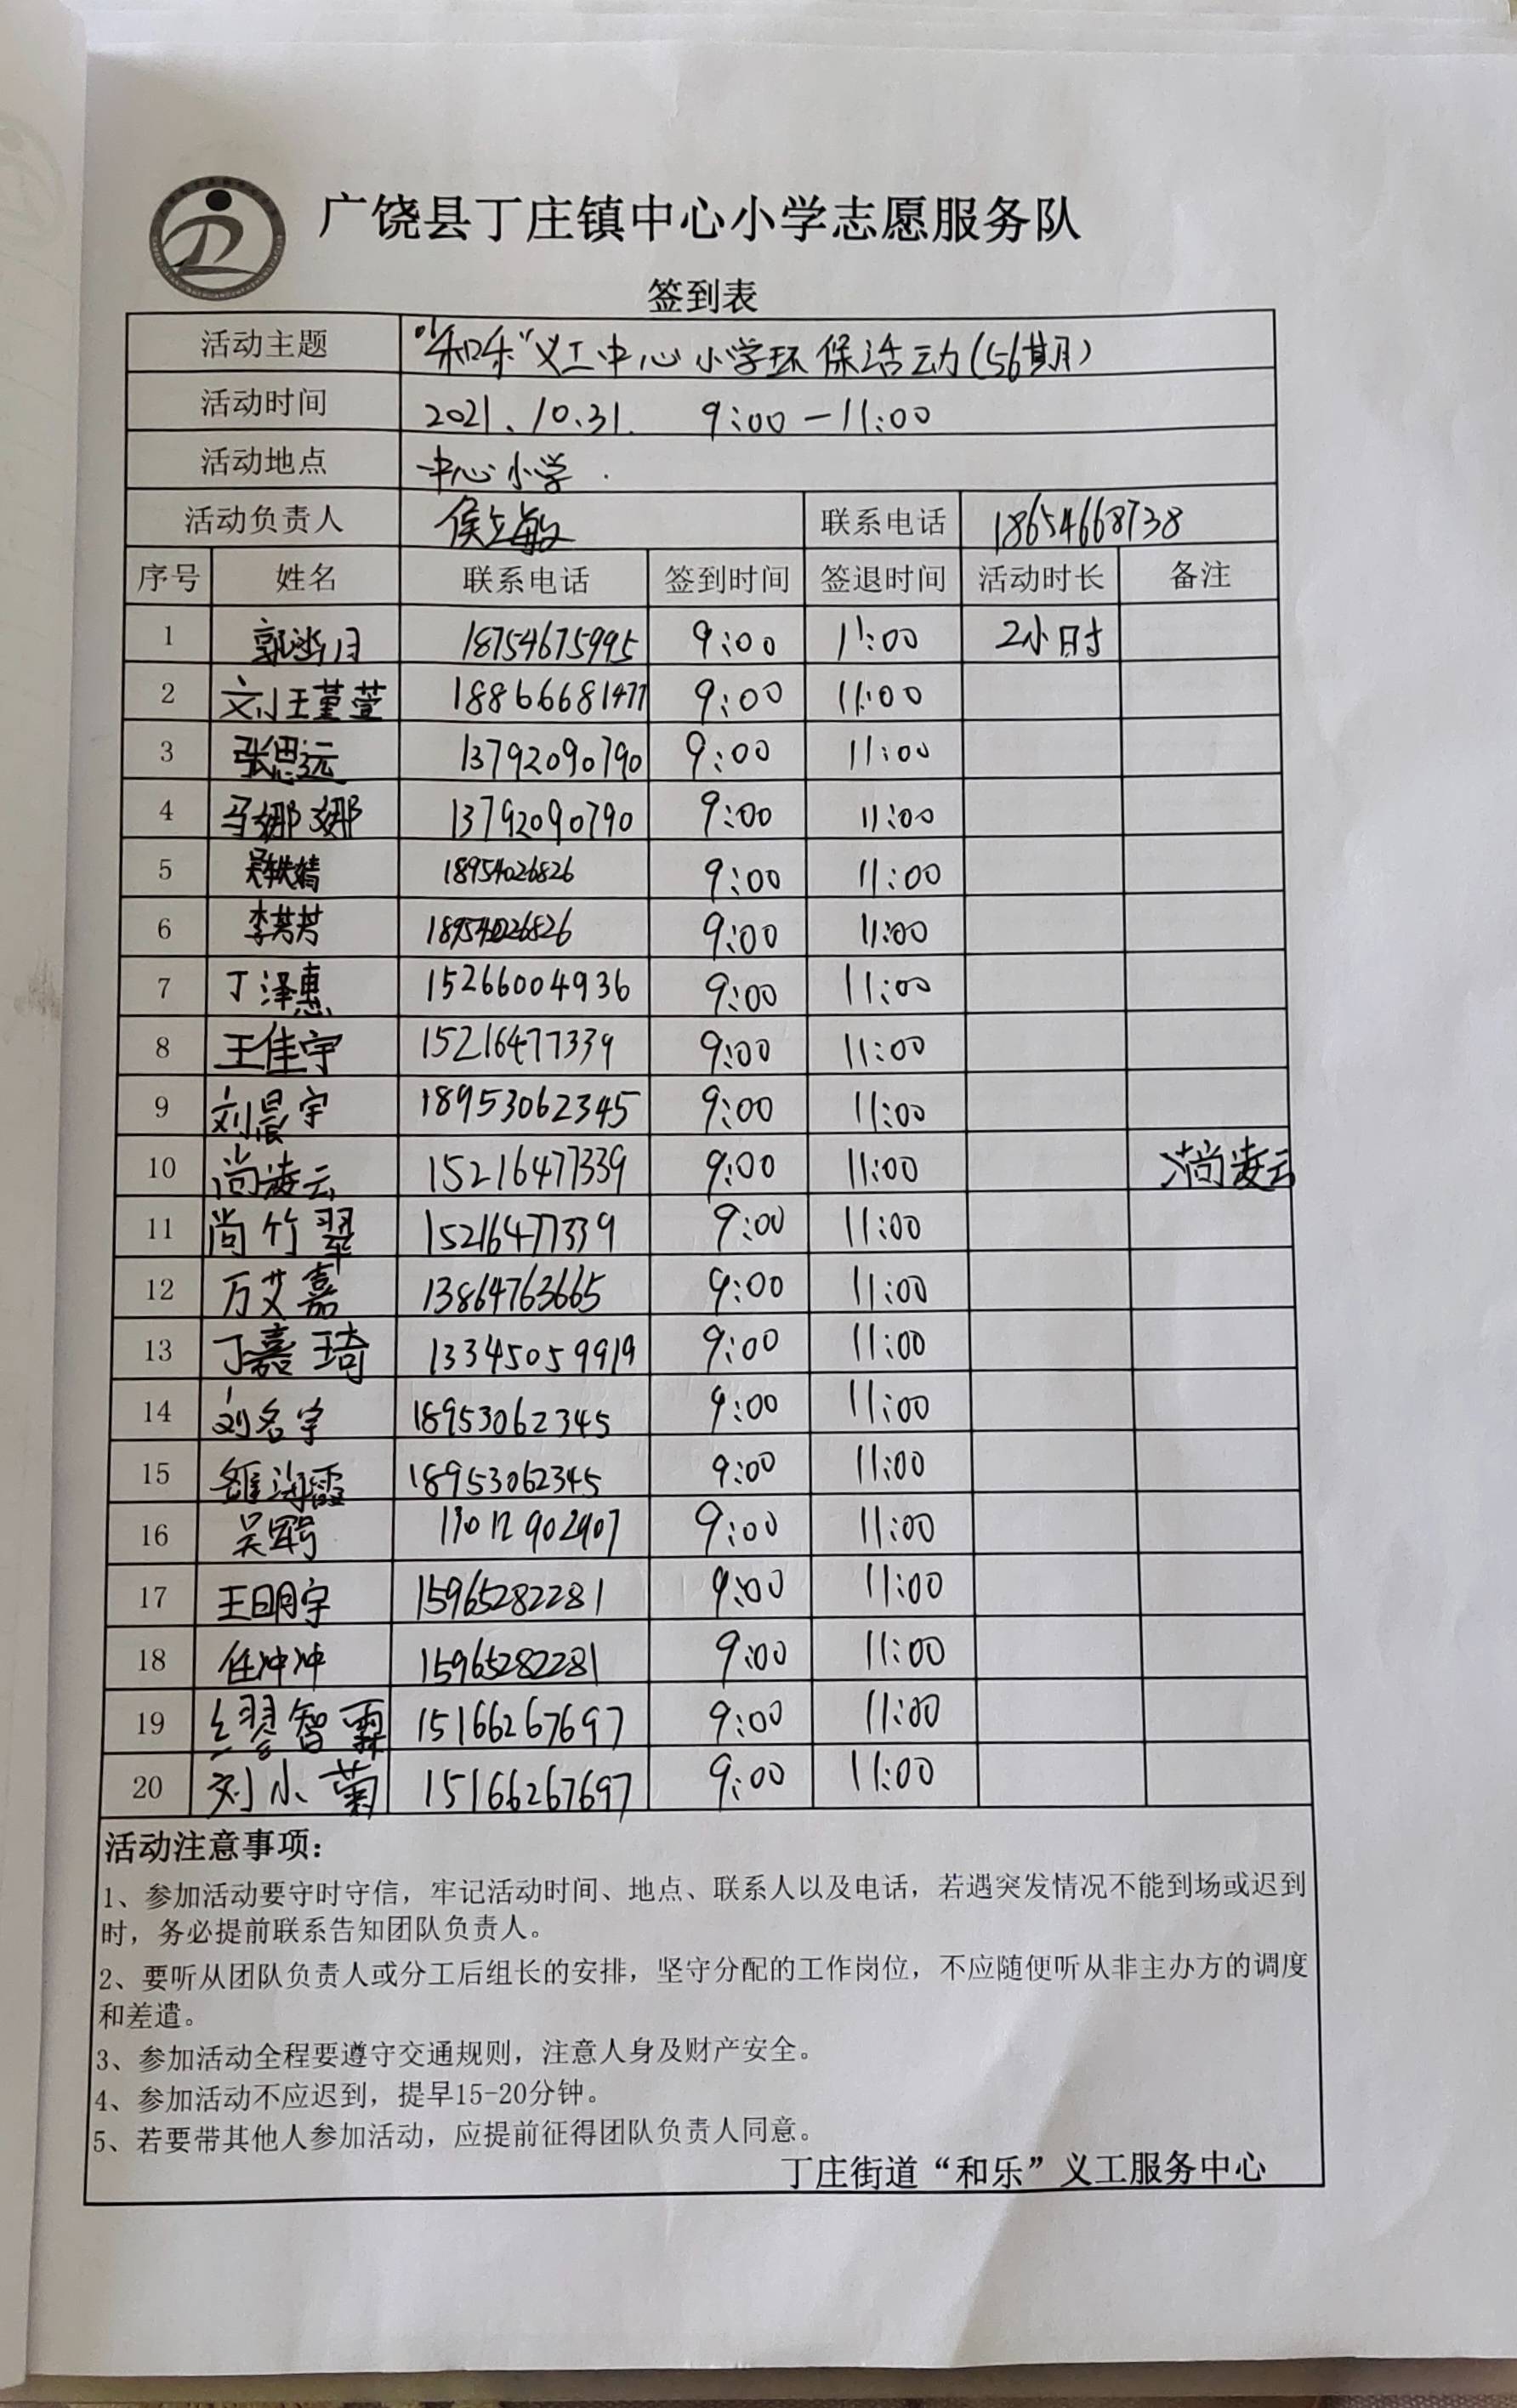 广饶县丁庄镇中心小学志愿服务队
签到表
活动主题 “和乐”义工中心小学环保活动(56期)
活动时间 2021.10.31. 9:00-11:00
活动地点 中心小学.
活动负责人 侯立敏 联系电话 18654668738
序号 姓名 联系电话 签到时间 签退时间 活动时长 备注
1 18754675995 9:00 11:00 2小时
2 刘王堇萱 18866681477 9:00 11:00
3 张思远 13792090790 9:00 11:00
4 马娜娜 13792090790 9:00 11:00
5 18954026826 9:00 11:00
6 李芳芳 18954026826 9:00 11:00
7 丁泽惠 15266004936 9:00 11:00
8 王佳宇 15216477339 9:00 11:00
9 刘晨宇 18953062345 9:00 11:00
10 尚凌云 15216477339 9:00 11:00 尚凌云
11 尚竹翠 15216477339 9:00 11:00
12 万艾嘉 13864763665 9:00 11:00
13 丁嘉琦 13345059919 9:00 11:00
14 刘名宇 18953062345 9:00 11:00
15 18953062345 9:00 11:00
16 9:00 11:00
17 王明宇 15965282281 9:00 11:00
18 任冲冲 15965282281 9:00 11:00
19 缪智霖 15166267697 9:00 11:00
20 刘小菊 15166267697 9:00 11:00
活动注意事项：
1、参加活动要守时守信，牢记活动时间、地点、联系人以及电话，若遇突发情况不能到场或迟到
时，务必提前联系告知团队负责人。
2、要听从团队负责人或分工后组长的安排，坚守分配的工作岗位，不应随便听从非主办方的调度
和差遣。
3、参加活动全程要遵守交通规则，注意人身及财产安全。
4、参加活动不应迟到，提早15-20分钟。
5、若要带其他人参加活动，应提前征得团队负责人同意。
丁庄街道“和乐”义工服务中心